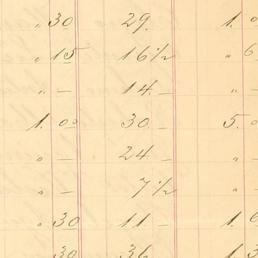 " 30 29. 1.
" 15 16 1/2 " 6
" – 14. – " –
1. 00 30 – 5. 0
" – 24 – " –
" – 7 1/2 " –
" 30 11 – 1. 6
30 36 1 3